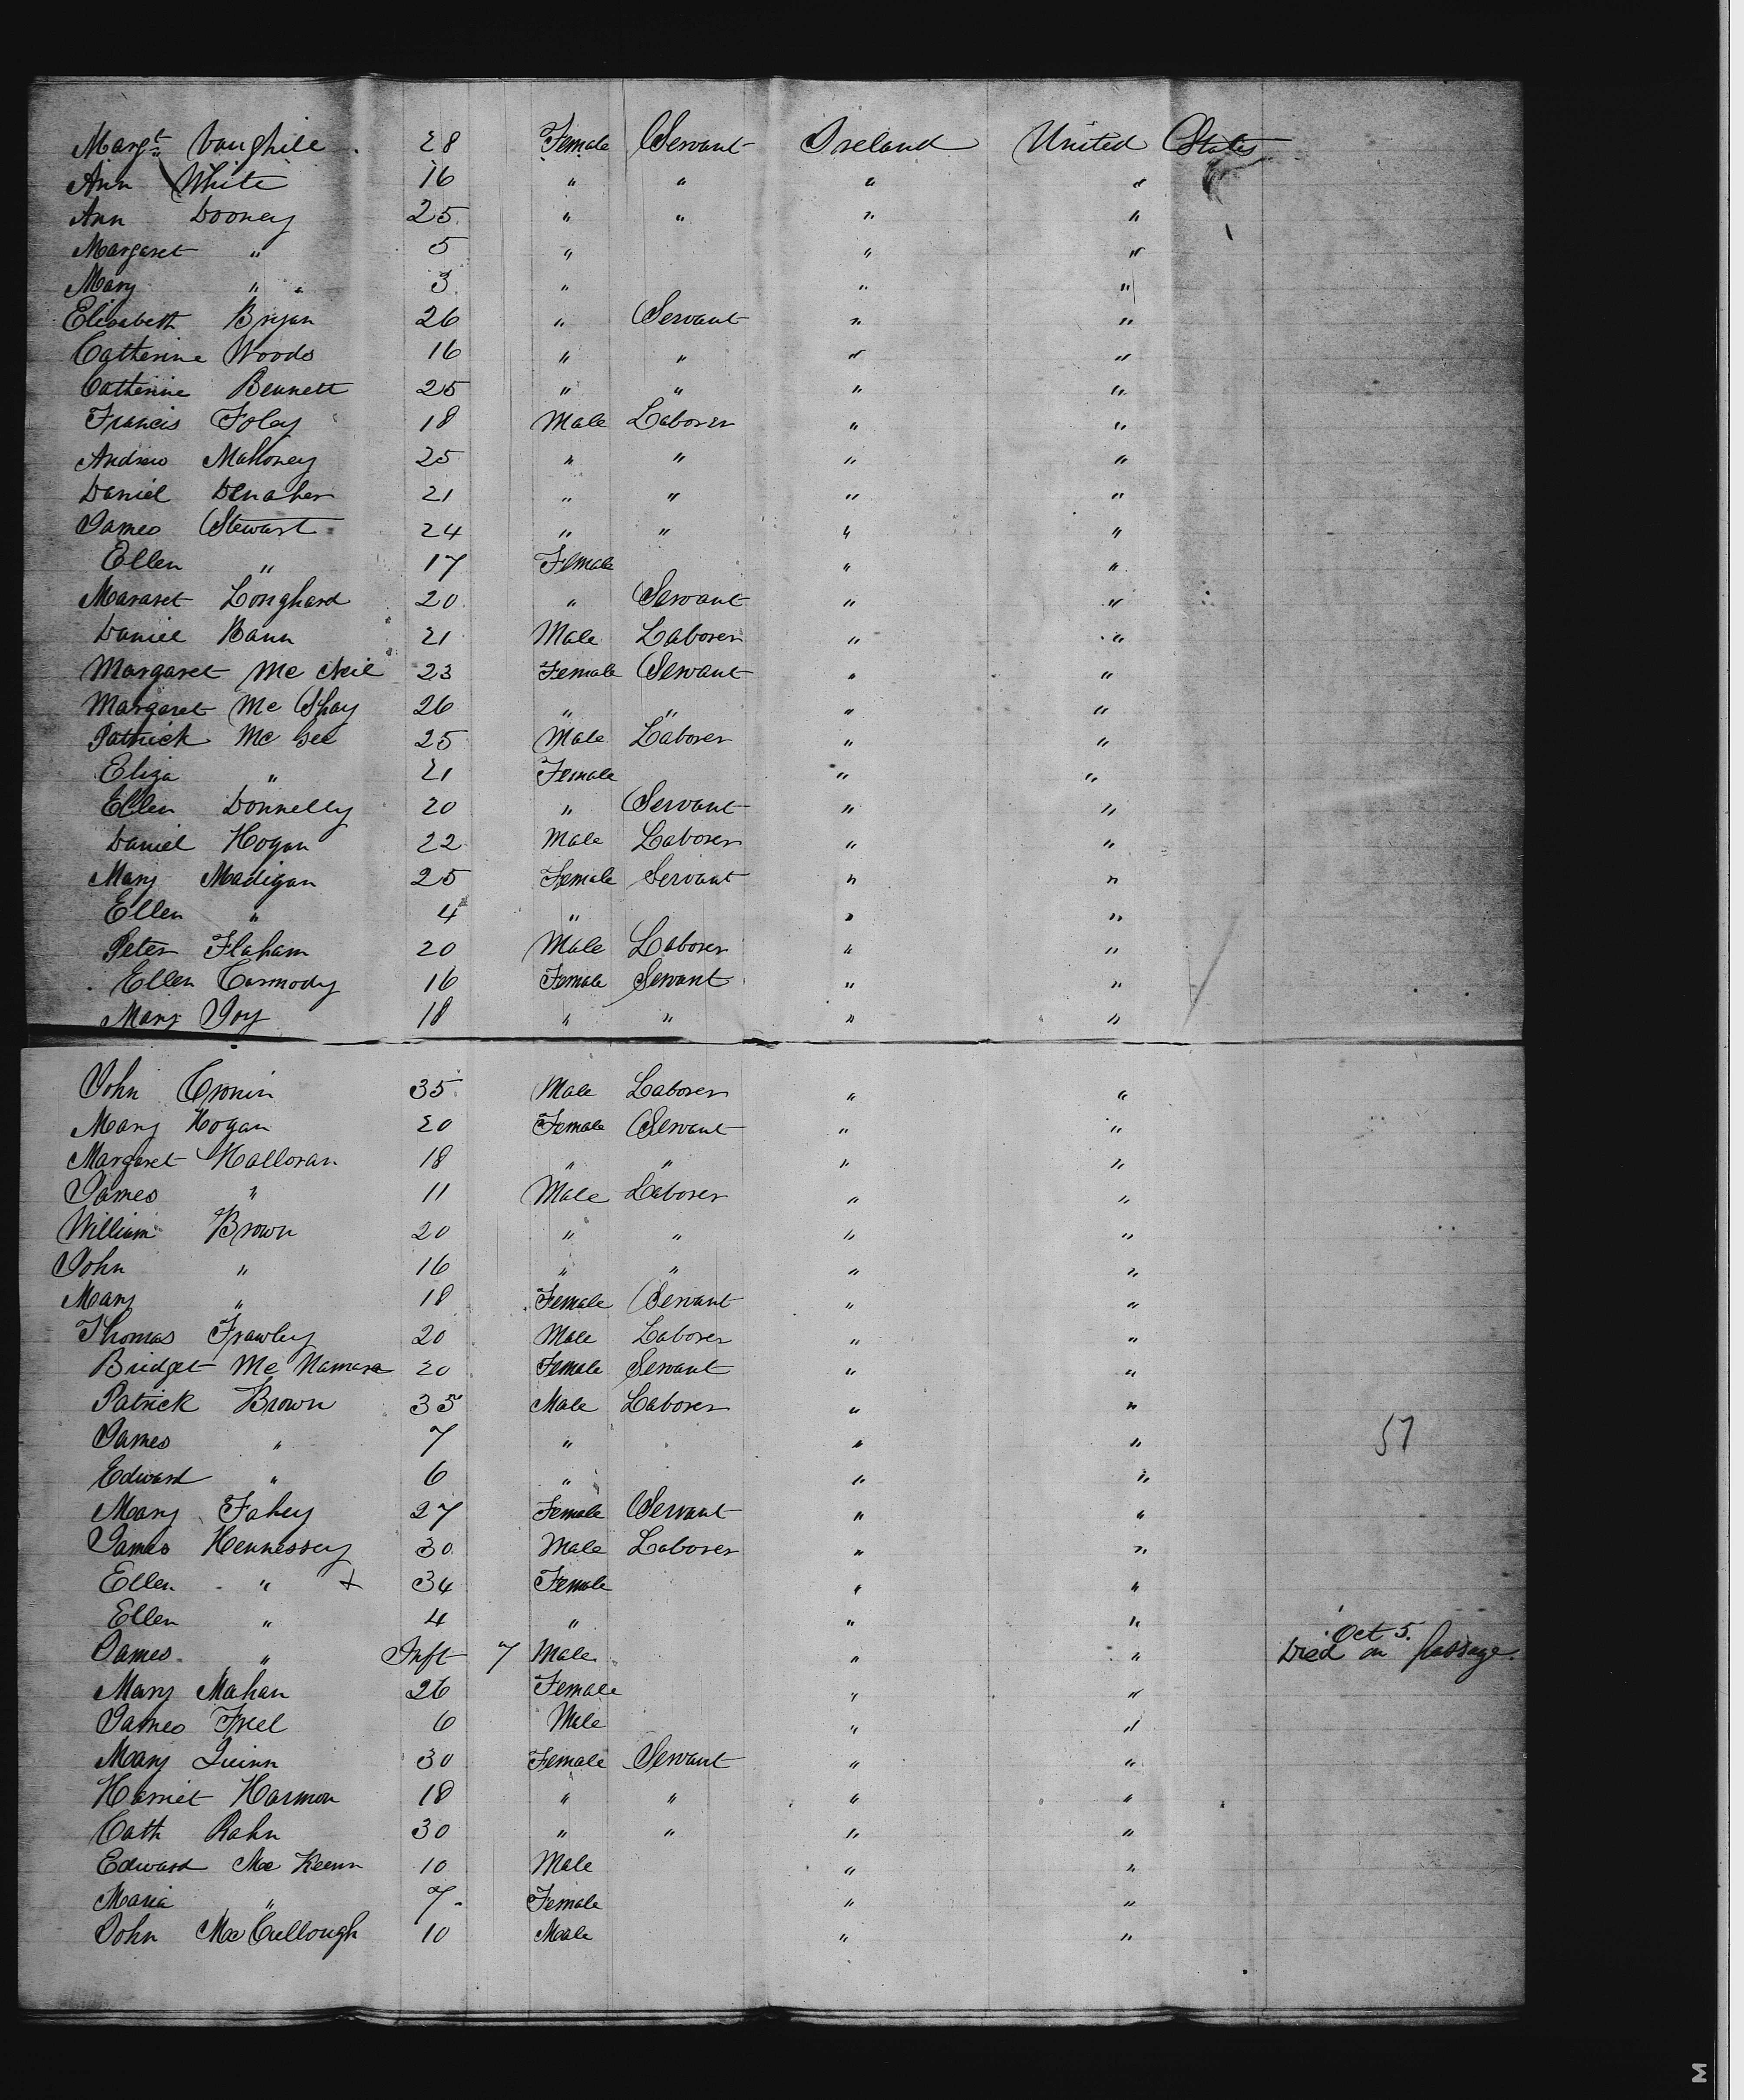 Margt Vaughile 28 Female Servant Ireland United States
Ann White 16 " " " "
Ann Dooney 25 " " " "
Margaret " 5 " " "
Mary " " 3 " " "
Elisabeth Bryan 26 " Servant " "
Catherine Woods 16 " " " "
Catherine Bennett 25 " " " "
Francis Foley 18 Male Laborer " "
Andrew Mahoney 25 " " " "
Daniel Denaher 21 " " " "
James Stewart 24 " " " "
Ellen " 17 Female " "
Mararet Longhard 20 " Servant " "
Daniel Bann 21 Male Laborer " "
Margaret Mc Neil 23 Female Servant " "
Margaret Mc Shay 26 " " " "
Patrick Mc Gee 25 Male Laborer " "
Eliza " 21 Female " "
Ellen Donnelly 20 " Servant " "
Daniel Hogan 22 Male Laborer " "
Mary Madigan 25 Female Servant " "
Ellen " 4 " " "
Peter Flaham 20 Male Laborer " "
Ellen Carmody 16 Female Servant " "
Mary Joy 18 " " " "
John Cronin 35 Male Laborer " "
Mary Hogan 20 Female Servant " "
Margaret Halloran 18 " " " "
James " 11 Male Laborer " "
William Brown 20 " " " "
John " 16 " " " "
Mary " 18 Female Servant " "
Thomas Frawley 20 Male Laborer " "
Bridget Mc Namara 20 Female Servant " "
Patrick Brown 35 Male Laborer " "
James " 7 " " " 57
Edward " 6 " " "
Mary Fahey 27 Female Servant " "
James Hennessey 30 Male Laborer " "
Ellen " + 34 Female " "
Ellen " 4 " " "
Oct 5.
James " Inft 7 Male " " Died on passage.
Mary Mahan 26 Female " "
James Freel 6 Male " "
Mary Quinn 30 Female Servant " "
Harriet Harmon 18 " " " "
Cath Rahn 30 " " " "
Edward Mc Keenn 10 Male " "
Maria " 7 Female " "
John Mc Cullough 10 Male " "
M